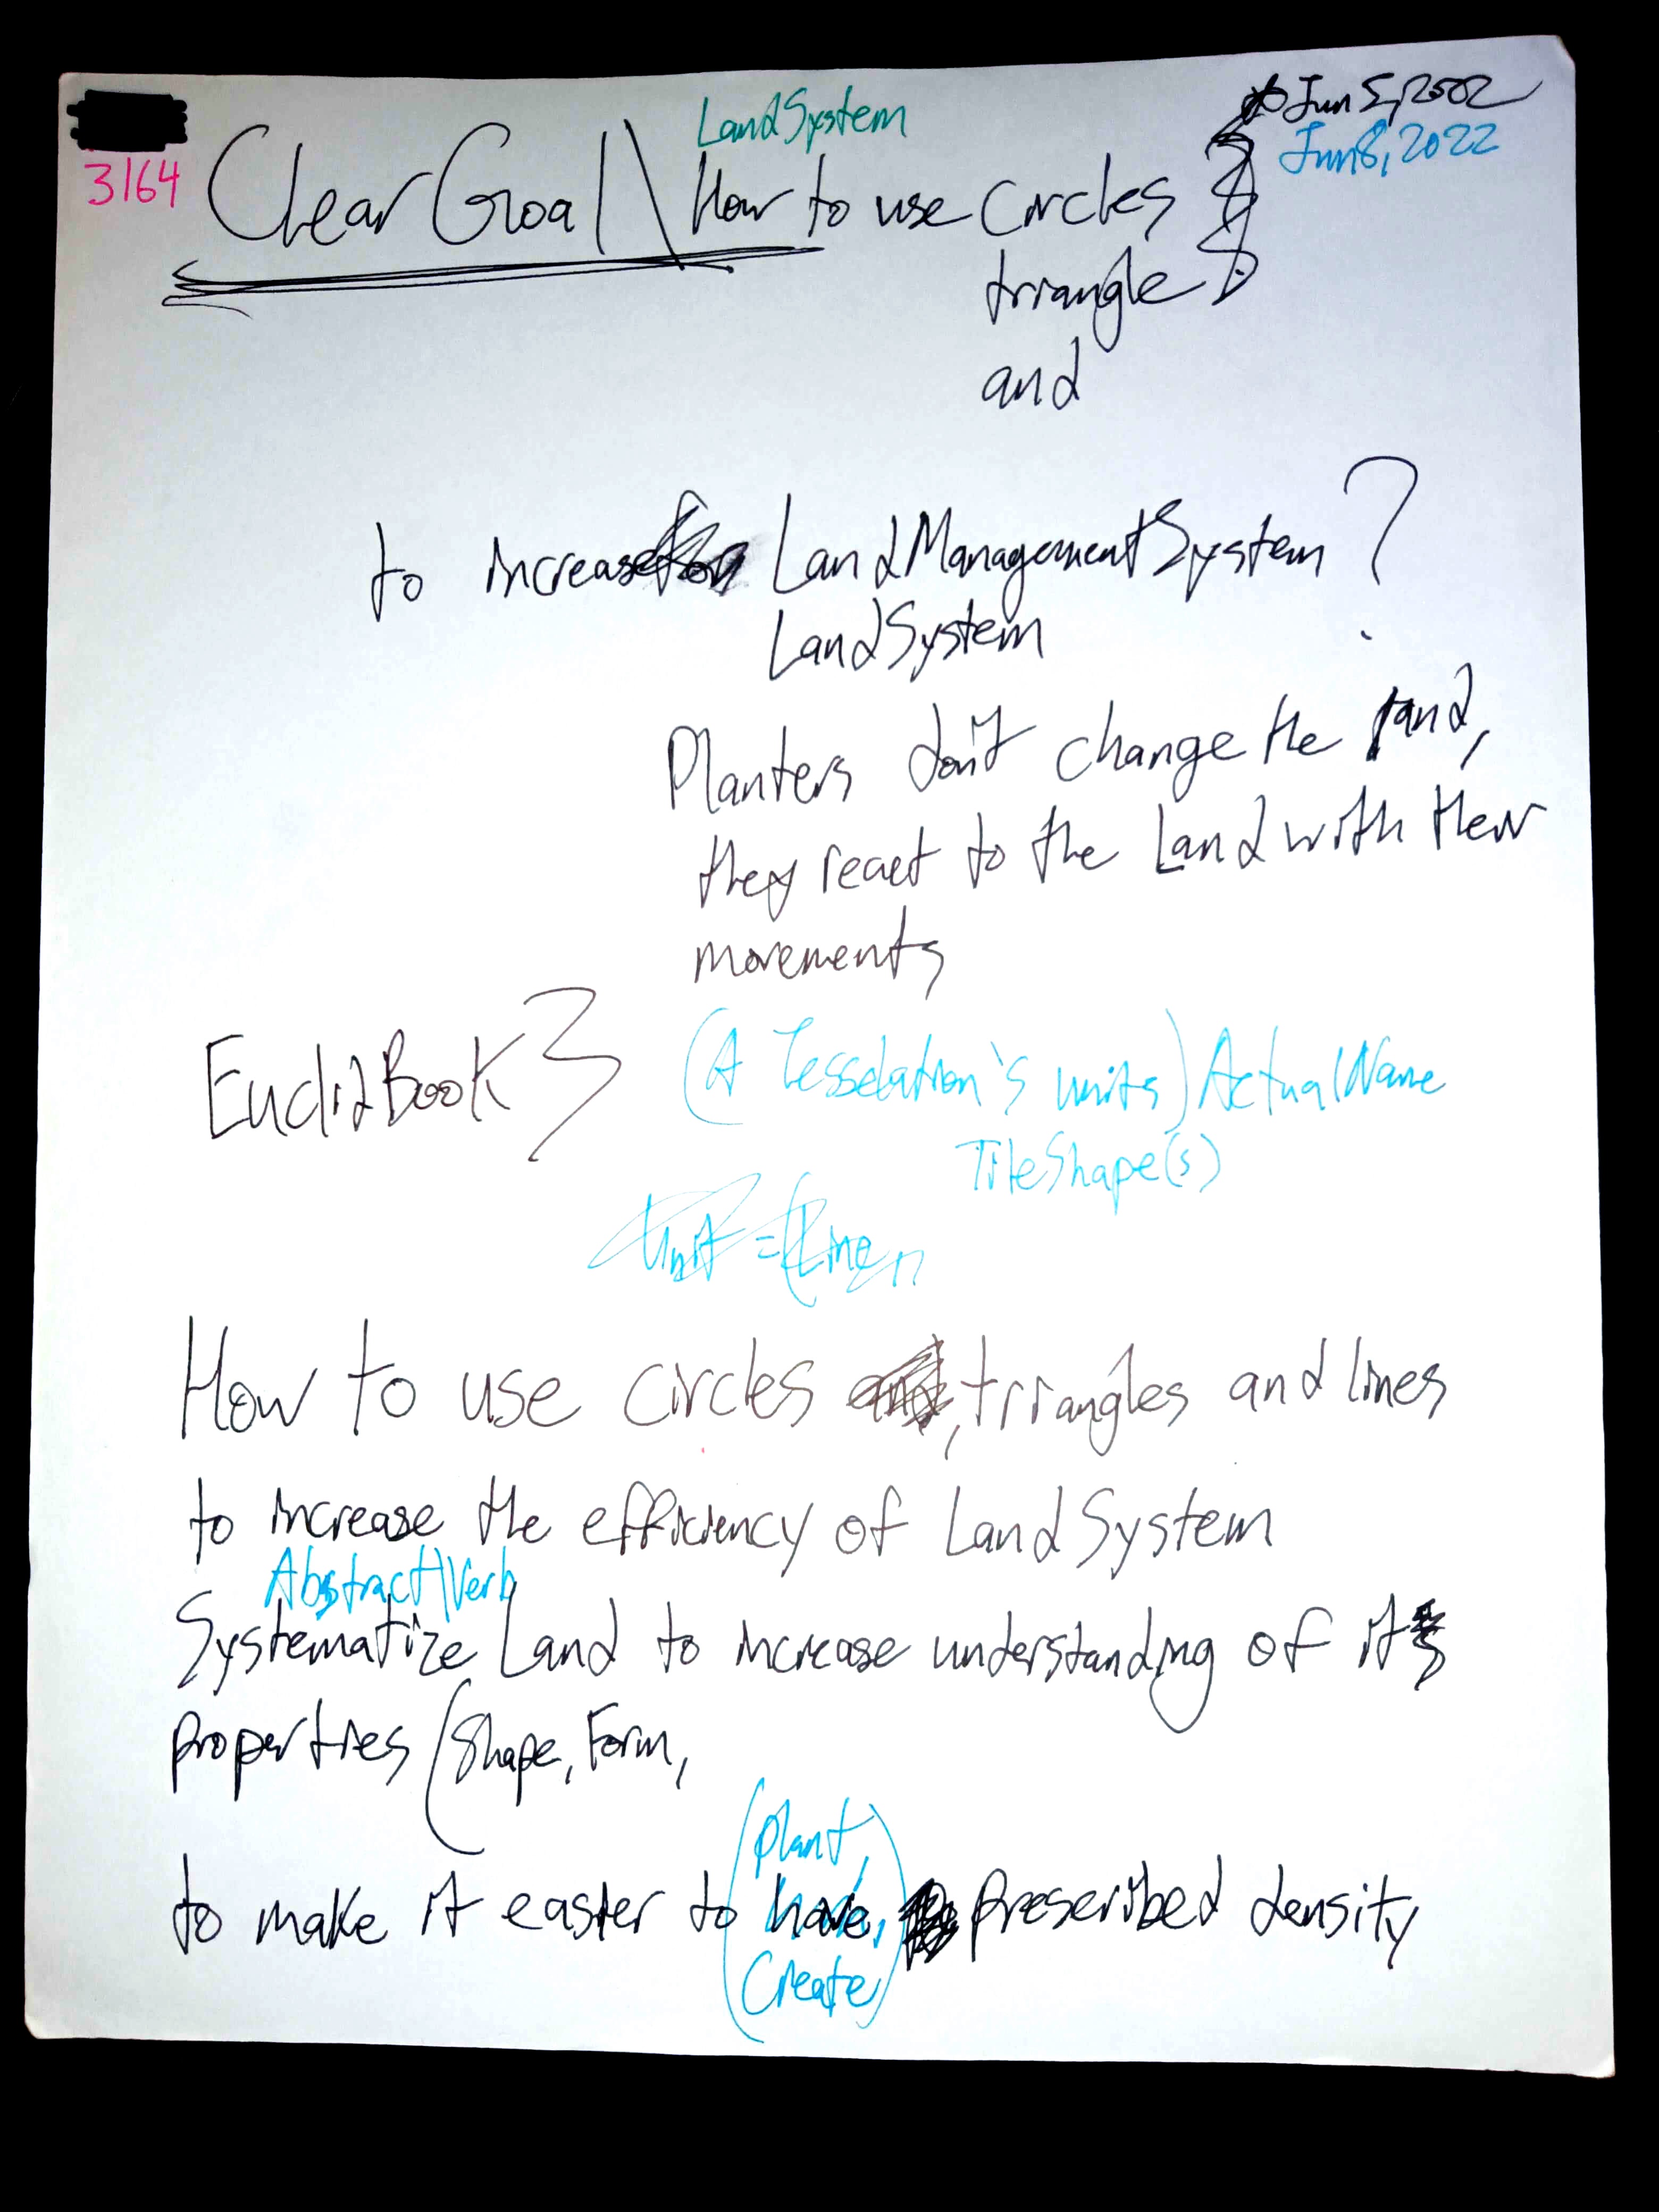 LandSystem
Jun 5, 2502
Jun 8, 2022
3164
ClearGoal\ How to use circles
triangle
and
to increase LandManagementSystem?
LandSystem
Planters don't change the land,
they react to the Land with their
movements
EuclidBook3
(A Tesselation's units) ActualName
TileShape(s)
Unit = (Line
How to use circles, triangles and lines
to increase the efficiency of LandSystem
Abstract\Verb
Systematize Land to increase understanding of its
properties (Shape, Form,
(plant,
to make it easier to have, prescribed density
Create)